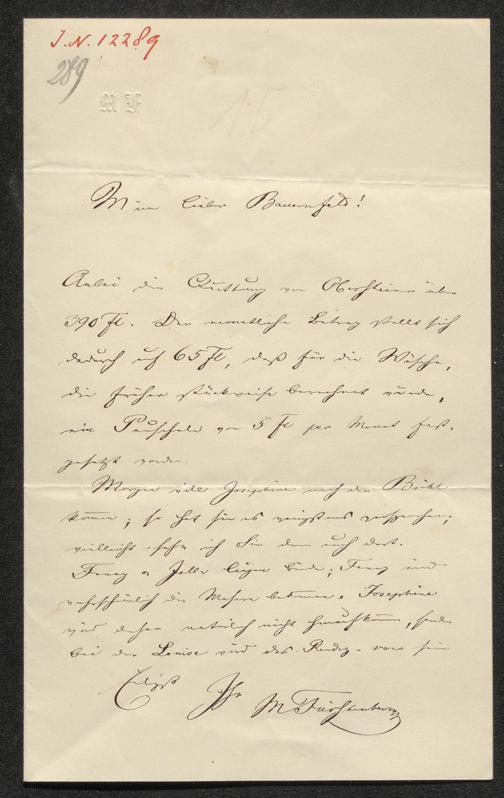 J.N. 12289
289
M F
15
Mein lieber Bauernfeld!
Anbei die Quittung von Obersteiner über
390 Fl. Der monatliche Betrag stellt sich
dadurch auf 65 Fl, daß für die Wäsche,
die früher stückweise berechnet wurde,
ein Pauschale von 5 Fl per Monat fest-
gesetzt wurde.
Morgen will Josephine nach der Brühl
kommen; so hat sie es wenigstens versprochen;
vielleicht sehe ich Sie dann auch dort.
Fanny u Jella liegen beide; Fanny wird
wahrscheinlich die Masern bekommen. Josephine
wird daher natürlich nicht hinaufkommen, sondern
bei der Louise wird das Rendez-vous sein
Eiligst Ihr